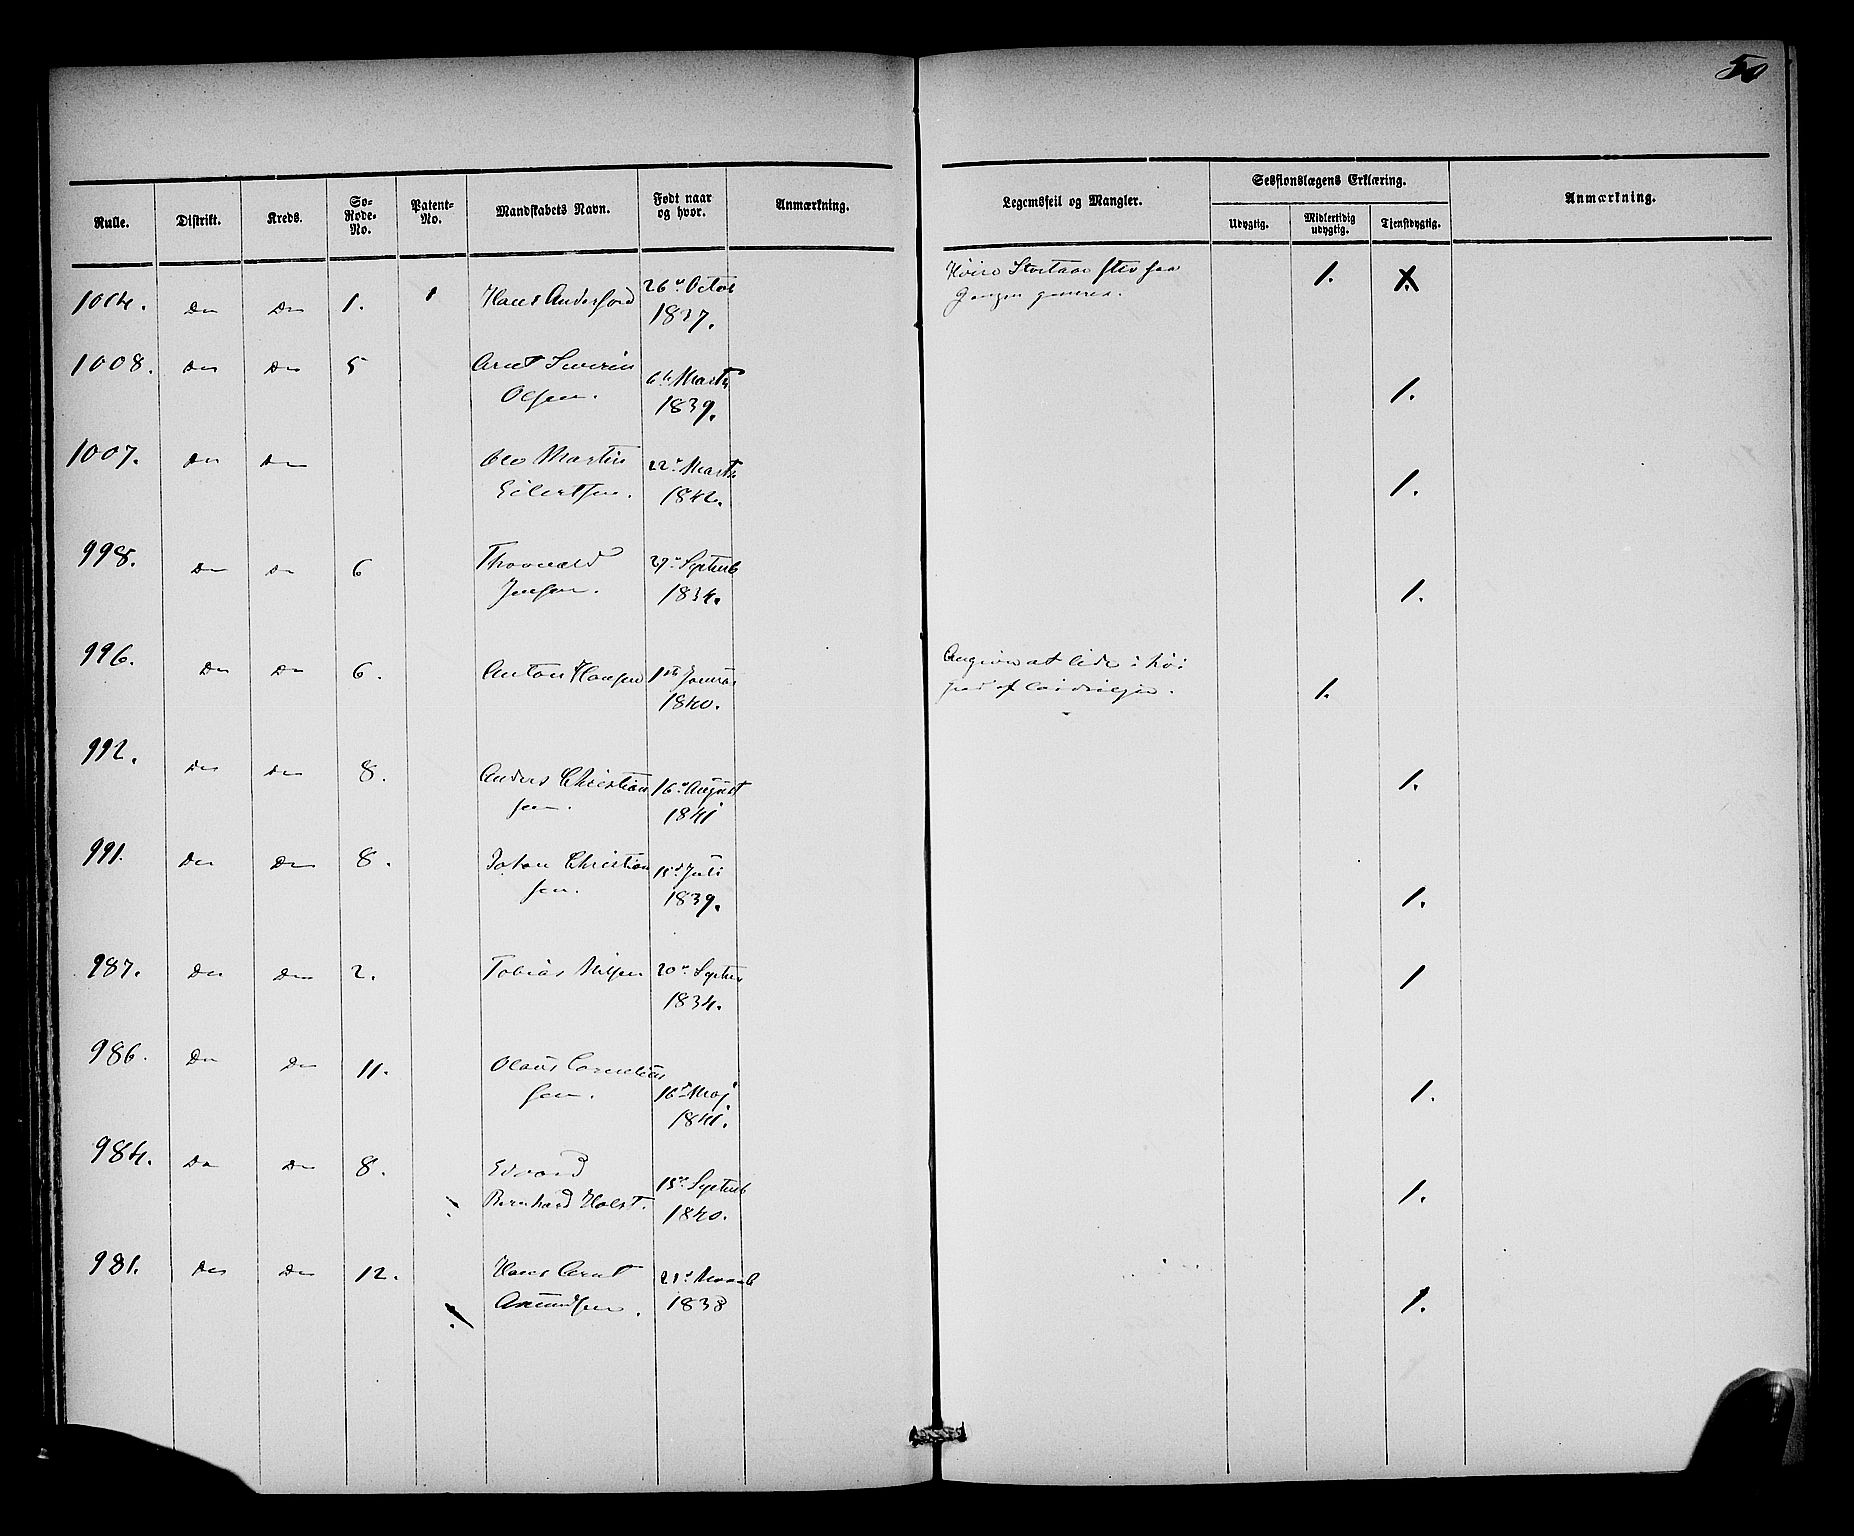 50
Rulle. Distrikt. Kreds. So-Rode-No. Patent-No. Mandskabets Navn. Født naar og hvor. Anmærkning. Legemsfeil og Mangler. Sessionslægens Erklæring. Anmærkning.
Udygtig. Midlertidig udygtig. Tjenstdygtig.
1004. Do Do 1. 1 Hans Anderssen 26de Octob Høire Stortaae stiv saa 1. 1.
1837. Gangen generes.
1008. Do Do 5 Arnt Severin 6te Marts
Olsen. 1839. 1.
1007. Do Do Ole Martin 22de Marts
Eilertsen. 1842. 1.
998. Do Do 6 Thorvald 29de Septemb
Jensen. 1834. 1.
996. Do Do 6. Anton Hansen 1ste Januar Angiver at lide i høi
1840. Grad af 1.
992. Do Do 8. Anders Christian 16de August 1.
sen. 1841
991. Do Do 8. Johan Christian 15de Juli
sen. 1839. 1.
987. Do Do 2. Tobias Nilsen 20de Septbr 1
1834.
986. Do Do 11. Olaus Cornelius
sen. 16de Maj 1.
1841.
984. Do Do 8. Edvard 15de Septemb
Bernhard Holst. 1840. 1.
981. Do Do 12. Hans Arnt 21de Novemb
Asmundsen. 1838 1.